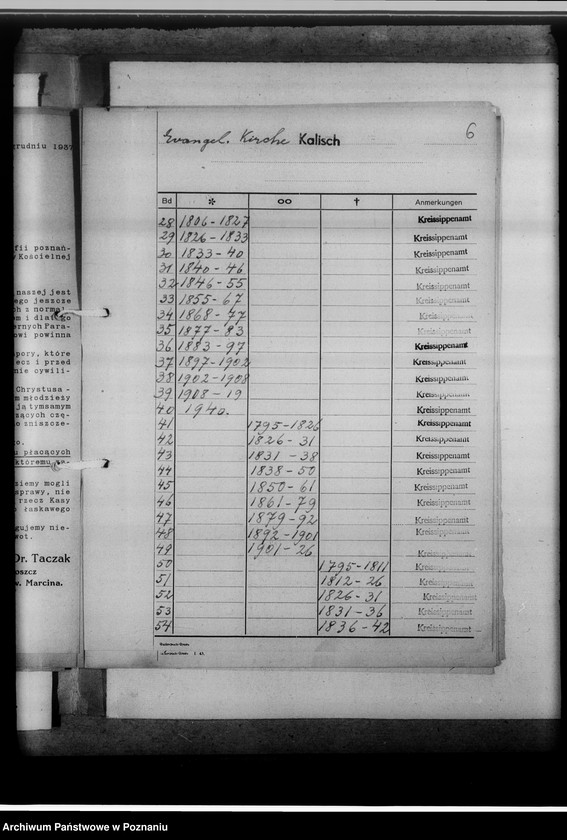 grudniu 1937
fii poznań-
Kościelnej
naszej jest
ego jeszcze
h z normal
m i dlatego
ernych Para-
owi powinna
pory, które
ecz i przed
nie cywili-
Chrystusa -
m młodzieży
ją tymsamym
zących czę-
o zniszcze-
o.
u płacących
któremu
ziemy mogli
sprawy, nie
rzecz Kasy
e łaskawego
gujemy nie-
wot.
Dr. Taczak
oszcz
w. Marcina.
6
Evangel. Kirche Kalisch
Bd * oo † Anmerkungen
28 1806-1827 Kreissippenamt
29 1826-1833 Kreissippenamt
30 1833-40 Kreissippenamt
31 1840-46 Kreissippenamt
32 1846-55 Kreissippenamt
33 1855-67 Kreissippenamt
34 1868-77 Kreissippenamt
35 1877-83 Kreissippenamt
36 1883-97 Kreissippenamt
37 1897-1902 Kreissippenamt
38 1902-1908 Kreissippenamt
39 1908-19 Kreissippenamt
40 1940. Kreissippenamt
41 1795-1826 Kreissippenamt
42 1826-31 Kreissippenamt
43 1831-38 Kreissippenamt
44 1838-50 Kreissippenamt
45 1850-61 Kreissippenamt
46 1861-79 Kreissippenamt
47 1879-92 Kreissippenamt
48 1892-1901 Kreissippenamt
49 1901-26 Kreissippenamt
50 1795-1811 Kreissippenamt
51 1812-26 Kreissippenamt
52 1826-31 Kreissippenamt
53 1831-36 Kreissippenamt
54 1836-42 Kreissippenamt
Archiwum Państwowe w Poznaniu